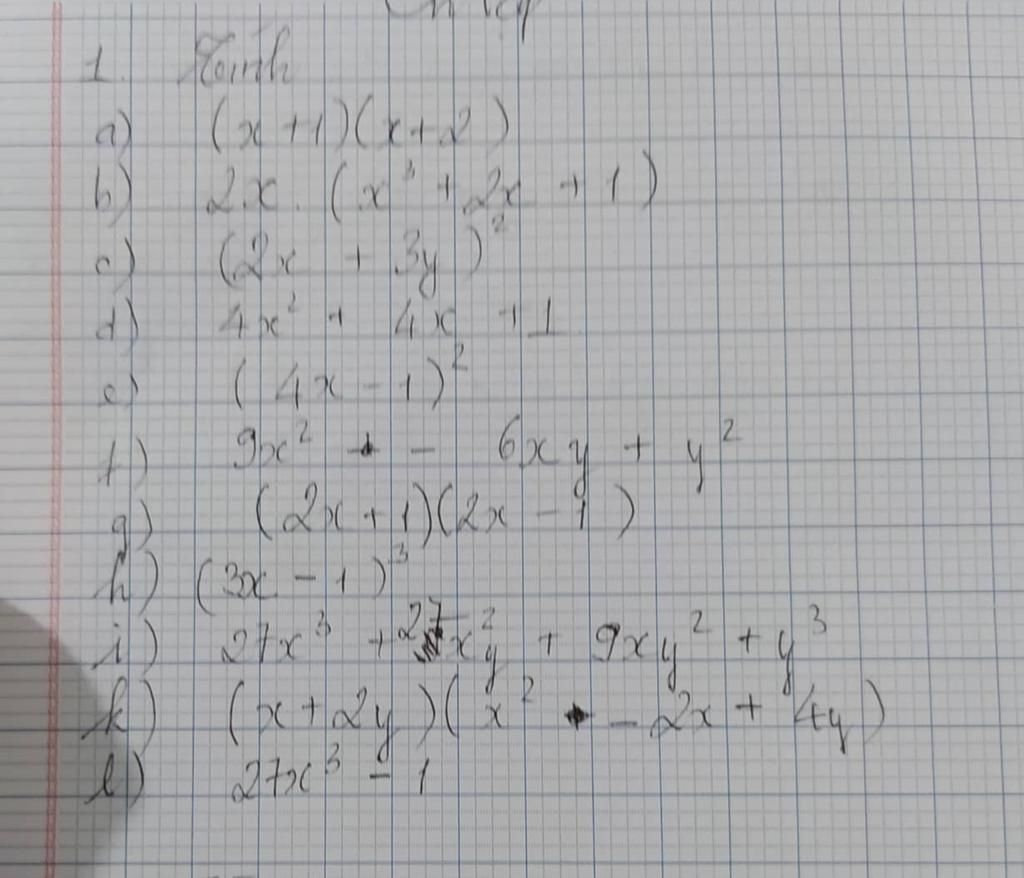 1. Tính
a) (x+1)(x+2)
b) 2x.(x³ + 2x + 1)
c) (2x + 3y)²
d) 4x² + 4x + 1
e) (4x - 1)²
f) 9x² - 6xy + y²
g) (2x+1)(2x - 1)
h) (3x - 1)³
i) 27x³ + 27x²y + 9xy² + y³
k) (x+2y)(x² - 2x + 4y)
l) 27x³ - 1